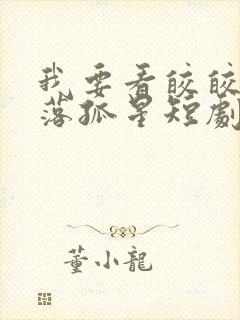 我要看皎皎
落孤星短劇
董小龍